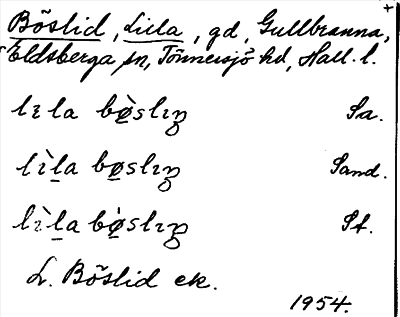 Böslid, Lilla, gd, Gullbranna,
Eldsberga sn, Tönnersjö hd, Hall. l.
lɪla bø̀slɪŋ Sa.
lɪ̀la bøslɪŋ Sand.
lɪ̀la bø̀slɪŋ St.
L. Böslid ek.
1954.